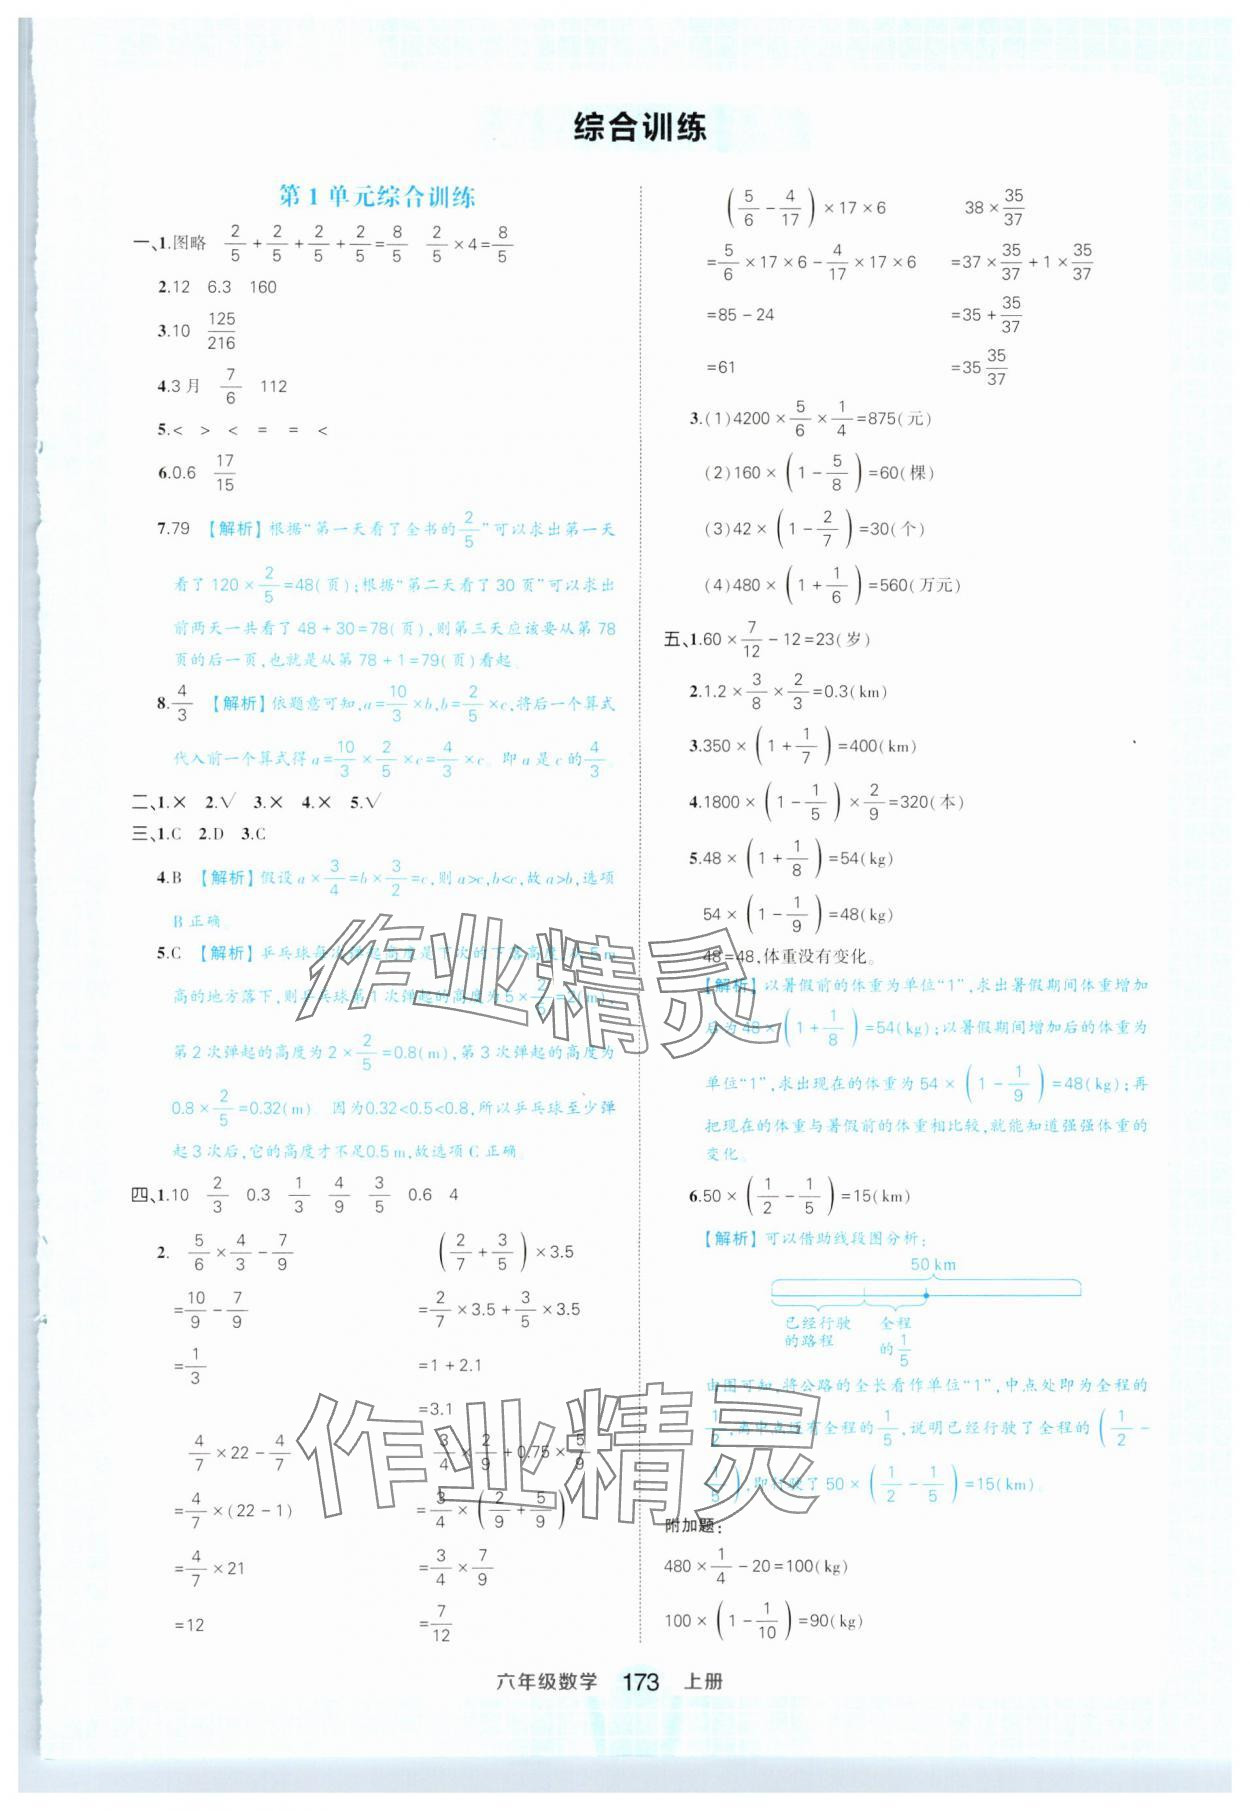 综合训练
第1单元综合训练
一、1.图略 2/5+2/5+2/5+2/5=8/5 2/5×4=8/5
2.12 6.3 160
3.10 125/216
4.3月 7/6 112
5.< > < = = <
6.0.6 17/15
7.79 【解析】根据“第一天看了全书的2/5”可以求出第一天
看了120×2/5=48(页);根据“第二天看了30页”可以求出
前两天一共看了48+30=78(页),则第三天应该要从第78
页的后一页,也就是从第78+1=79(页)看起。
8.4/3 【解析】依题意可知,a=10/3×b,b=2/5×c,将后一个算式
代入前一个算式得a=10/3×2/5×c=4/3×c。即a是c的4/3。
二、1.× 2.√ 3.× 4.× 5.√
三、1.C 2.D 3.C
4.B 【解析】假设a×3/4=b×3/2=c,则a>c,b<c,故a>b,选项
B正确。
5.C 【解析】乒乓球每次弹起高度是下次的下落高度,从5m
高的地方落下,则乒乓球第1次弹起的高度为5×2/5=2(m),
第2次弹起的高度为2×2/5=0.8(m),第3次弹起的高度为
0.8×2/5=0.32(m) 因为0.32<0.5<0.8,所以乒乓球至少弹
起3次后,它的高度才不足0.5m,故选项C正确。
四、1.10 2/3 0.3 1/3 4/9 3/5 0.6 4
2. 5/6×4/3-7/9 (2/7+3/5)×3.5
=10/9-7/9 =2/7×3.5+3/5×3.5
=1/3 =1+2.1
=3.1
4/7×22-4/7 3/4×2/9+0.75×5/9
=4/7×(22-1) =3/4×(2/9+5/9)
=4/7×21 =3/4×7/9
=12 =7/12
(5/6-4/17)×17×6 38×35/37
=5/6×17×6-4/17×17×6 =37×35/37+1×35/37
=85-24 =35+35/37
=61 =35 35/37
3.(1)4200×5/6×1/4=875(元)
(2)160×(1-5/8)=60(棵)
(3)42×(1-2/7)=30(个)
(4)480×(1+1/6)=560(万元)
五、1.60×7/12-12=23(岁)
2.1.2×3/8×2/3=0.3(km)
3.350×(1+1/7)=400(km)
4.1800×(1-1/5)×2/9=320(本)
5.48×(1+1/8)=54(kg)
54×(1-1/9)=48(kg)
48=48,体重没有变化。
【解析】以暑假前的体重为单位“1”,求出暑假期间体重增加
后为48×(1+1/8)=54(kg);以暑假期间增加后的体重为
单位“1”,求出现在的体重为54×(1-1/9)=48(kg);再
把现在的体重与暑假前的体重相比较,就能知道强强体重的
变化。
6.50×(1/2-1/5)=15(km)
【解析】可以借助线段图分析:
50 km
已经行驶 全程
的路程 的1/5
由图可知,将公路的全长看作单位“1”,中点处即为全程的
1/2,离中点还有全程的1/5,说明已经行驶了全程的(1/2-
1/5),即行驶了50×(1/2-1/5)=15(km)。
附加题:
480×1/4-20=100(kg)
100×(1-1/10)=90(kg)
六年级数学 173 上册
作业精灵
作业精灵